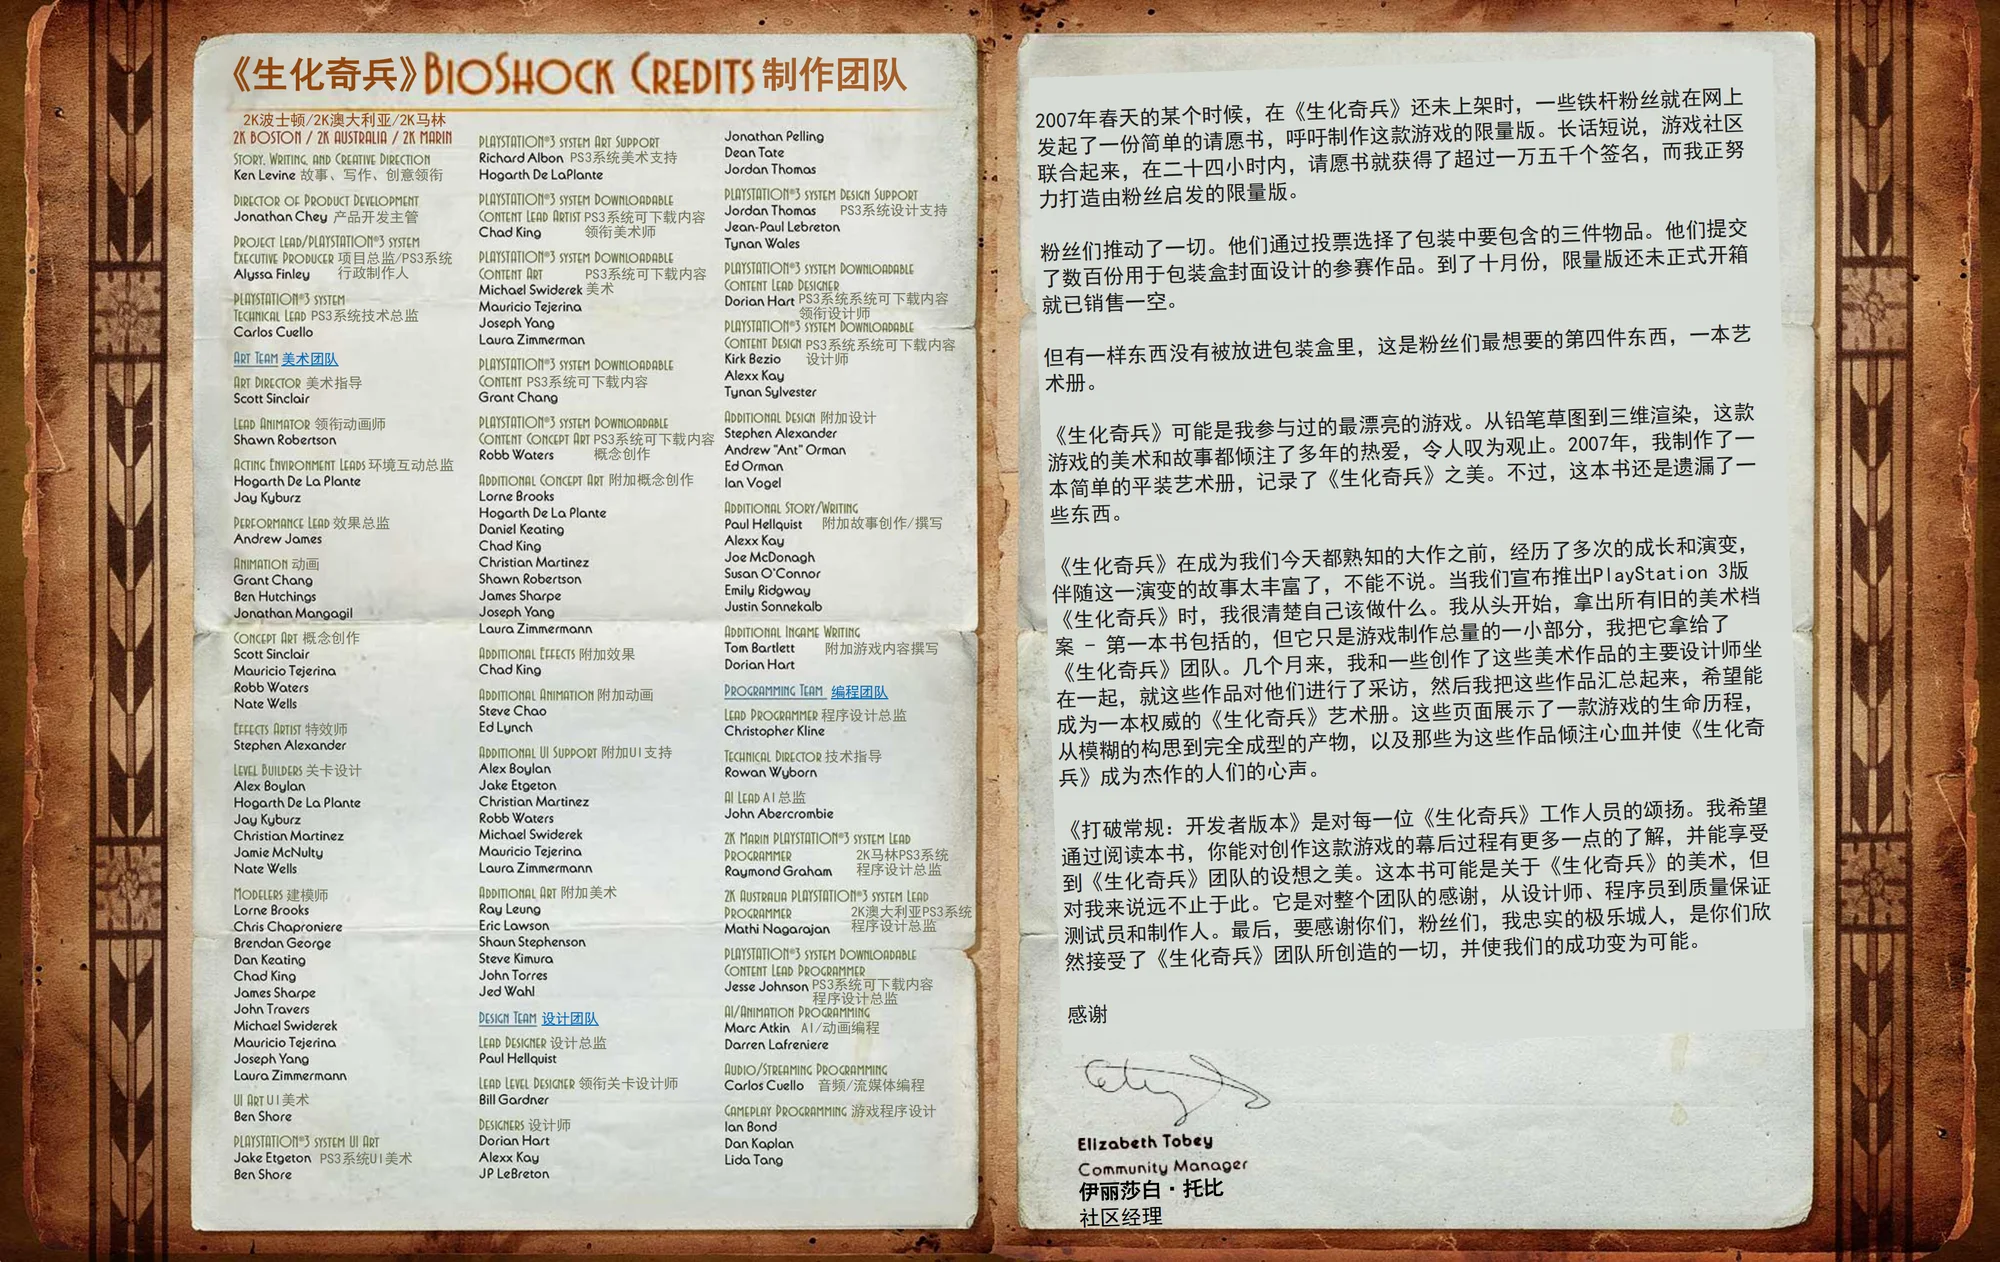 《生化奇兵》BIOSHOCK CREDITS 制作团队
2K波士顿/2K澳大利亚/2K马林
2K BOSTON / 2K AUSTRALIA / 2K MARIN
STORY, WRITING, AND CREATIVE DIRECTION
Ken Levine 故事、写作、创意领衔
DIRECTOR OF PRODUCT DEVELOPMENT
Jonathan Chey 产品开发主管
PROJECT LEAD/PLAYSTATION®3 SYSTEM
EXECUTIVE PRODUCER 项目总监/PS3系统
Alyssa Finley 行政制作人
PLAYSTATION®3 SYSTEM
TECHNICAL LEAD PS3系统技术总监
Carlos Cuello
ART TEAM 美术团队
ART DIRECTOR 美术指导
Scott Sinclair
LEAD ANIMATOR 领衔动画师
Shawn Robertson
ACTING ENVIRONMENT LEADS 环境互动总监
Hogarth De La Plante
Jay Kyburz
PERFORMANCE LEAD 效果总监
Andrew James
ANIMATION 动画
Grant Chang
Ben Hutchings
Jonathan Mangagil
CONCEPT ART 概念创作
Scott Sinclair
Mauricio Tejerina
Robb Waters
Nate Wells
EFFECTS ARTIST 特效师
Stephen Alexander
LEVEL BUILDERS 关卡设计
Alex Boylan
Hogarth De La Plante
Jay Kyburz
Christian Martinez
Jamie McNulty
Nate Wells
MODELERS 建模师
Lorne Brooks
Chris Chaproniere
Brendan George
Dan Keating
Chad King
James Sharpe
John Travers
Michael Swiderek
Mauricio Tejerina
Joseph Yang
Laura Zimmermann
UI ART UI美术
Ben Shore
PLAYSTATION®3 SYSTEM UI ART
Jake Etgeton PS3系统UI美术
Ben Shore
PLAYSTATION®3 SYSTEM ART SUPPORT
Richard Albon PS3系统美术支持
Hogarth De LaPlante
PLAYSTATION®3 SYSTEM DOWNLOADABLE
CONTENT LEAD ARTIST PS3系统可下载内容
Chad King 领衔美术师
PLAYSTATION®3 SYSTEM DOWNLOADABLE
CONTENT ART PS3系统可下载内容
Michael Swiderek 美术
Mauricio Tejerina
Joseph Yang
Laura Zimmerman
PLAYSTATION®3 SYSTEM DOWNLOADABLE
CONTENT PS3系统可下载内容
Grant Chang
PLAYSTATION®3 SYSTEM DOWNLOADABLE
CONTENT CONCEPT ART PS3系统可下载内容
Robb Waters 概念创作
ADDITIONAL CONCEPT ART 附加概念创作
Lorne Brooks
Hogarth De La Plante
Daniel Keating
Chad King
Christian Martinez
Shawn Robertson
James Sharpe
Joseph Yang
Laura Zimmermann
ADDITIONAL EFFECTS 附加效果
Chad King
ADDITIONAL ANIMATION 附加动画
Steve Chao
Ed Lynch
ADDITIONAL UI SUPPORT 附加UI支持
Alex Boylan
Jake Etgeton
Christian Martinez
Robb Waters
Michael Swiderek
Mauricio Tejerina
Laura Zimmermann
ADDITIONAL ART 附加美术
Ray Leung
Eric Lawson
Shaun Stephenson
Steve Kimura
John Torres
Jed Wahl
DESIGN TEAM 设计团队
LEAD DESIGNER 设计总监
Paul Hellquist
LEAD LEVEL DESIGNER 领衔关卡设计师
Bill Gardner
DESIGNERS 设计师
Dorian Hart
Alexx Kay
JP LeBreton
Jonathan Pelling
Dean Tate
Jordan Thomas
PLAYSTATION®3 SYSTEM DESIGN SUPPORT
Jordan Thomas PS3系统设计支持
Jean-Paul Lebreton
Tynan Wales
PLAYSTATION®3 SYSTEM DOWNLOADABLE
CONTENT LEAD DESIGNER
Dorian Hart PS3系统系统可下载内容
领衔设计师
PLAYSTATION®3 SYSTEM DOWNLOADABLE
CONTENT DESIGN PS3系统系统可下载内容
Kirk Bezio 设计师
Alexx Kay
Tynan Sylvester
ADDITIONAL DESIGN 附加设计
Stephen Alexander
Andrew "Ant" Orman
Ed Orman
Ian Vogel
ADDITIONAL STORY/WRITING
Paul Hellquist 附加故事创作/撰写
Alexx Kay
Joe McDonagh
Susan O'Connor
Emily Ridgway
Justin Sonnekalb
ADDITIONAL INGAME WRITING
Tom Bartlett 附加游戏内容撰写
Dorian Hart
PROGRAMMING TEAM 编程团队
LEAD PROGRAMMER 程序设计总监
Christopher Kline
TECHNICAL DIRECTOR 技术指导
Rowan Wyborn
AI LEAD AI总监
John Abercrombie
2K MARIN PLAYSTATION®3 SYSTEM LEAD
PROGRAMMER 2K马林PS3系统
Raymond Graham 程序设计总监
2K AUSTRALIA PLAYSTATION®3 SYSTEM LEAD
PROGRAMMER 2K澳大利亚PS3系统
Mathi Nagarajan 程序设计总监
PLAYSTATION®3 SYSTEM DOWNLOADABLE
CONTENT LEAD PROGRAMMER
Jesse Johnson PS3系统可下载内容
程序设计总监
AI/ANIMATION PROGRAMMING
Marc Atkin AI/动画编程
Darren Lafreniere
AUDIO/STREAMING PROGRAMMING
Carlos Cuello 音频/流媒体编程
GAMEPLAY PROGRAMMING 游戏程序设计
Ian Bond
Dan Kaplan
Lida Tang
2007年春天的某个时候，在《生化奇兵》还未上架时，一些铁杆粉丝就在网上
发起了一份简单的请愿书，呼吁制作这款游戏的限量版。长话短说，游戏社区
联合起来，在二十四小时内，请愿书就获得了超过一万五千个签名，而我正努
力打造由粉丝启发的限量版。
粉丝们推动了一切。他们通过投票选择了包装中要包含的三件物品。他们提交
了数百份用于包装盒封面设计的参赛作品。到了十月份，限量版还未正式开箱
就已销售一空。
但有一样东西没有被放进包装盒里，这是粉丝们最想要的第四件东西，一本艺
术册。
《生化奇兵》可能是我参与过的最漂亮的游戏。从铅笔草图到三维渲染，这款
游戏的美术和故事都倾注了多年的热爱，令人叹为观止。2007年，我制作了一
本简单的平装艺术册，记录了《生化奇兵》之美。不过，这本书还是遗漏了一
些东西。
《生化奇兵》在成为我们今天都熟知的大作之前，经历了多次的成长和演变，
伴随这一演变的故事太丰富了，不能不说。当我们宣布推出PlayStation 3版
《生化奇兵》时，我很清楚自己该做什么。我从头开始，拿出所有旧的美术档
案 - 第一本书包括的，但它只是游戏制作总量的一小部分，我把它拿给了
《生化奇兵》团队。几个月来，我和一些创作了这些美术作品的主要设计师坐
在一起，就这些作品对他们进行了采访，然后我把这些作品汇总起来，希望能
成为一本权威的《生化奇兵》艺术册。这些页面展示了一款游戏的生命历程，
从模糊的构思到完全成型的产物，以及那些为这些作品倾注心血并使《生化奇
兵》成为杰作的人们的心声。
《打破常规：开发者版本》是对每一位《生化奇兵》工作人员的颂扬。我希望
通过阅读本书，你能对创作这款游戏的幕后过程有更多一点的了解，并能享受
到《生化奇兵》团队的设想之美。这本书可能是关于《生化奇兵》的美术，但
对我来说远不止于此。它是对整个团队的感谢，从设计师、程序员到质量保证
测试员和制作人。最后，要感谢你们，粉丝们，我忠实的极乐城人，是你们欣
然接受了《生化奇兵》团队所创造的一切，并使我们的成功变为可能。
感谢
Elizabeth Tobey
Community Manager
伊丽莎白·托比
社区经理